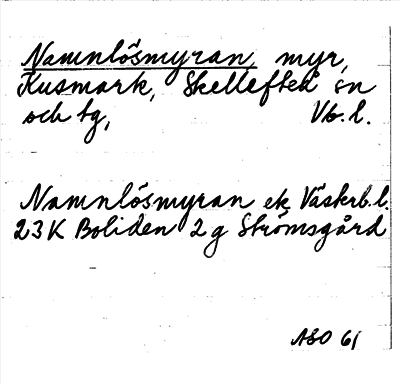 Namnlösmyran, myr,
Kusmark, Skellefteå sn
och tg, Vb. l.
Namnlösmyran ek Västerb.l.
23K Boliden 2g Strömsgård
ASO 61